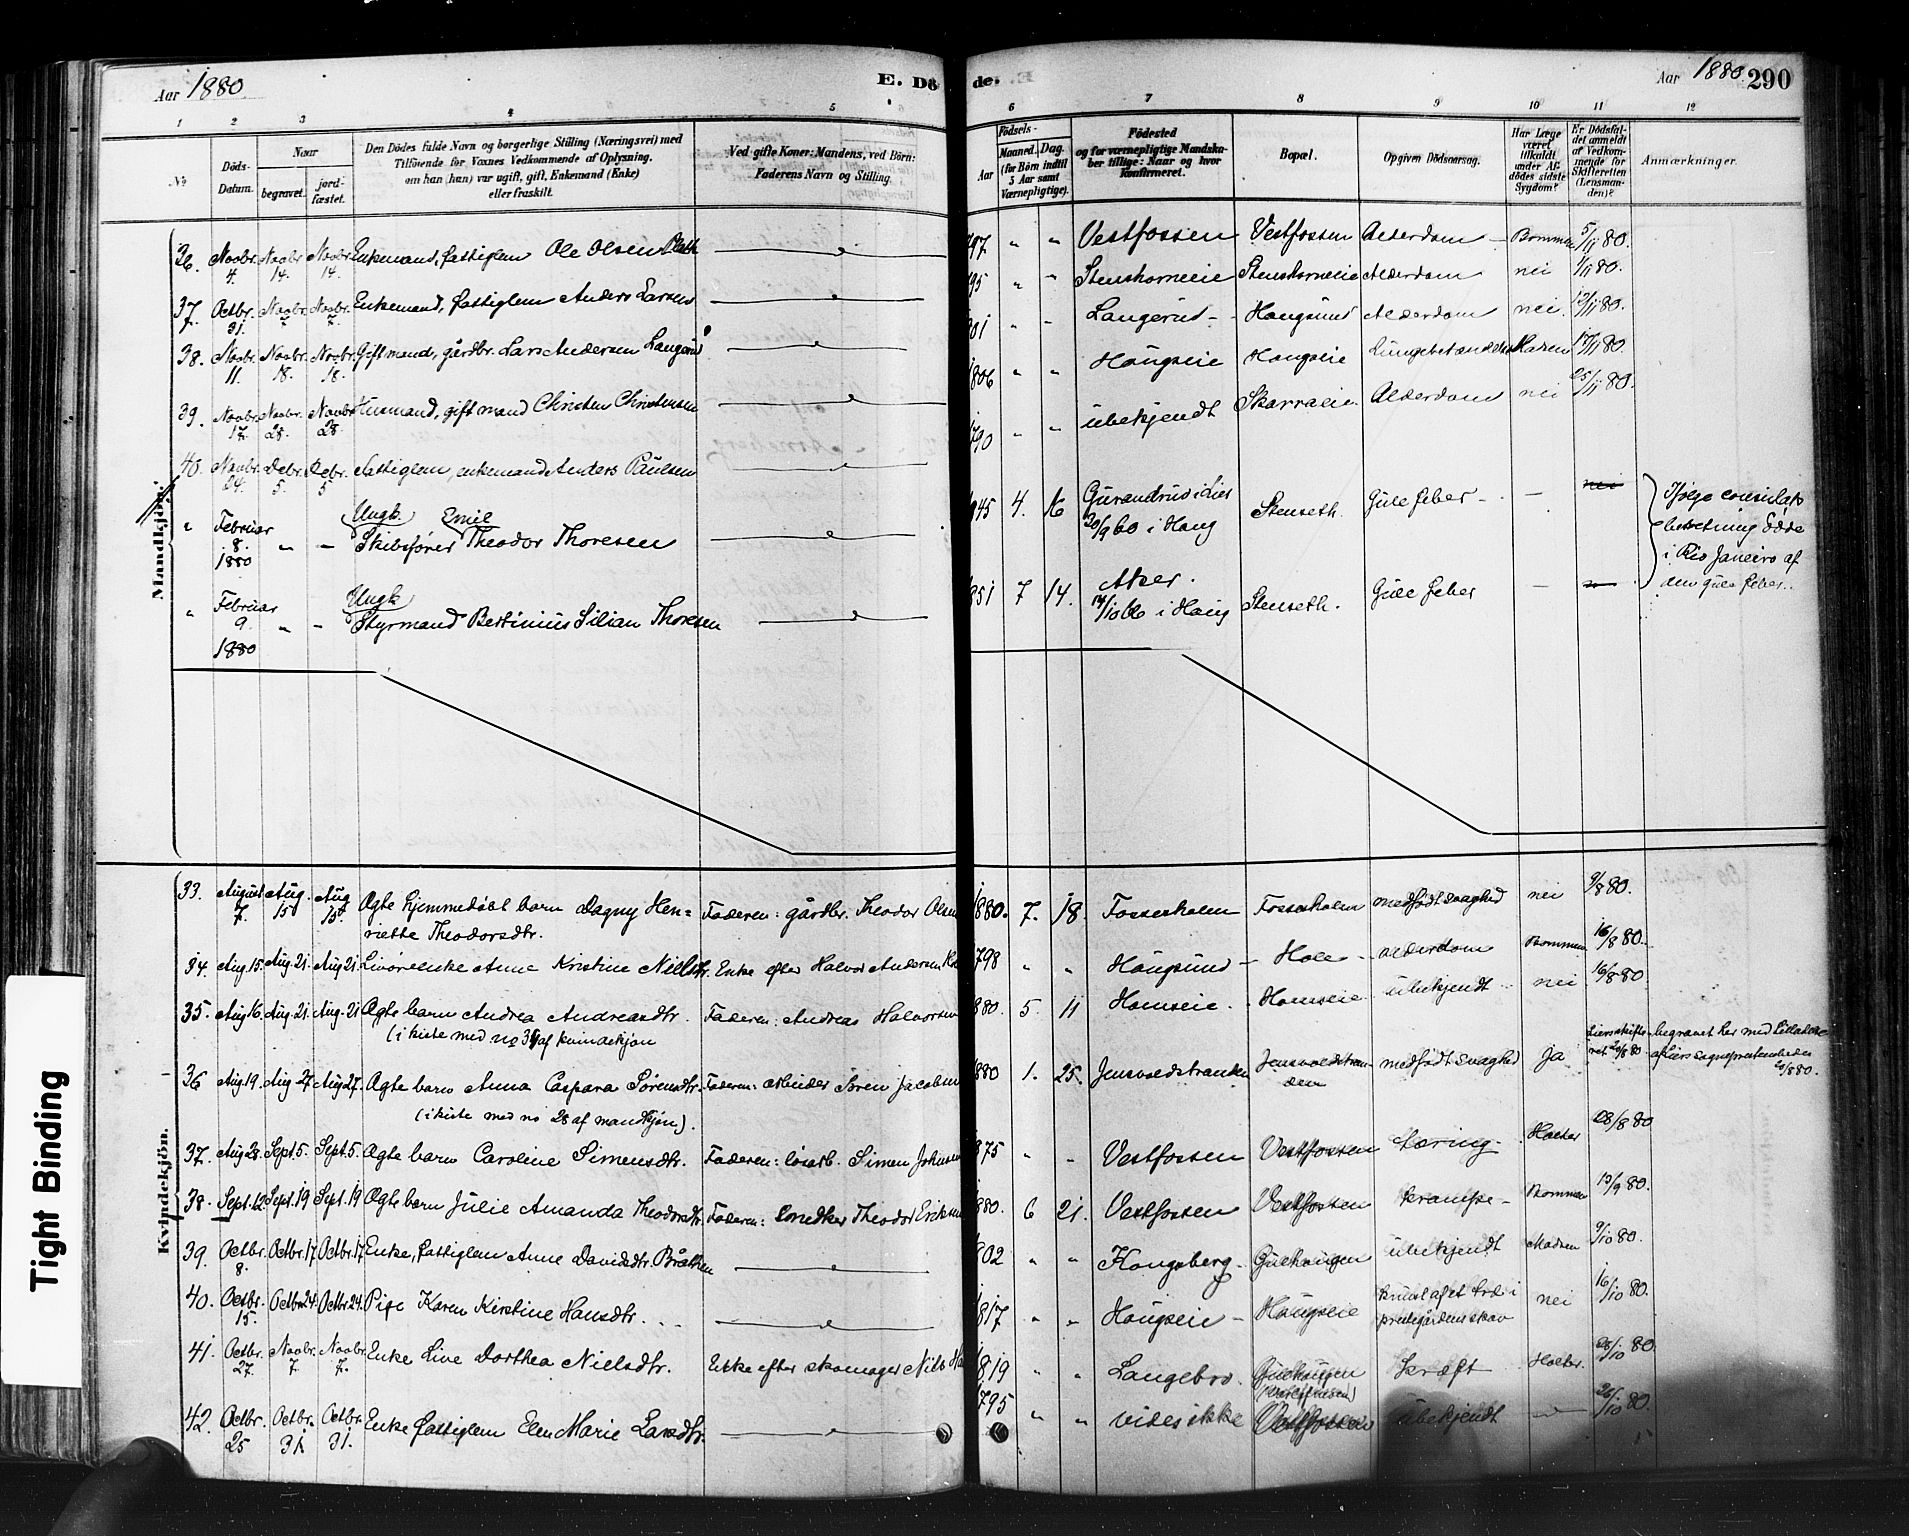 Aar 1880
E. Dö
de.
Aar 1880.
290
1 2 3 4 5 6 7 8 9 10 11 12
No
Döds-Datum.
Naar
begravet.
jordfæstet.
Den Dödes fulde Navn og borgerlige Stilling (Næringsvei) med
Tilföiende for Voxnes Vedkommende af Oplysning,
om han (hun) var ugift, gift, Enkemand (Enke)
eller fraskilt.
Ved gifte Koner: Mandens, ved Börn:
Faderens Navn og Stilling.
Födsels-
Aar
Maaned. Dag.
(for Börn indtil
5 Aar samt
Værnepligtige).
Födested
og for værnepligtige Mandska-
ber tillige: Naar og hvor
konfirmeret.
Bopæl.
Opgiven Dödsaarsag.
Har Læge
været
tilkaldt
under Af-
dödes sidste
Sygdom?
Er Dödsfal-
det anmeldt
af Vedkom-
mende for
Skifteretten
(Lensman-
den)?
Anmærkninger.
Mandkjön.
36. Novbr. 4. Novbr. 14. Novbr. 14. Enkemand, fattiglem Ole Olsen 797 " " Vestfossen Vestfossen Alderdom Bommen 5/11 80.
37. Octbr. 31. Novbr. 7 Novbr. 7. Enkemand, fattiglem Anders Larsen 795 " " Stenshorneie Stenshorneie Alderdom nei 1/11 80.
38. Novbr. 11. Novbr. 18. Novbr. 18. Gift mand, gårdbr. Lars Andersen Langerud 801 " " Langerud Hougsund Alderdom nei. 12/11 80.
39. Novbr. 17. Novbr. 28. Novbr. 28. Husmand, gift mand Christen Christensen 1806 " " Hougseie Hougseie Lungebetændelse 17/11 80.
40. Novbr. 24. Debr. 5. Debr. 5 Fattiglem, enkemand Anders Paulsen 1790 " " ubekjendt Skarraeie Alderdom nei 25/11 80.
" Februar 8. 1880 " – Ungk. Skibsfører Emil Theodor Thoresen 845 4. 16 Gurandrud i Lier 20/9 60 i Haug Stenseth. Gule feber – nei
" Februar 9 1880 " – Ungk Styrmand Bertinius Silian Thoresen 851 7 14. Asker. 14/10 66 i Haug Stenseth. Gule feber –
Ifølge consulats
beretning døde
i Rio Janeiro af
den gule feber.
Kvindekjön.
33. August 7. Aug. 15 Aug 15. Ægte hjemmedøbt barn Dagny Hen=
riette Theodorsdtr. Faderen: gårdbr. Theodor Olsen 1880. 7. 18. Fosserholm Fosserholm medfødt svaghed nei 9/8 80.
34. Aug 15. Aug. 21. Aug 21. Anne Kristine Nielsdtr. Enke efter Halvor Andersen 798 " " Hougsund – Hole – alderdom Bommen 16/8 80.
35. Aug 16. Aug. 21. Aug. 21 Ægte barn Andrea Andreasdtr. Faderen: Andreas Halvorsen 880. 5. 11 Homseie. Homseie ubekjendt nei 16/8 80
(i kiste med no 34 af kvindekjön
36 Aug 19. Aug 27 Aug 27. Ægte barn Anna Caspara Sørensdtr. Faderen: arbeider Søren Jacobsen 880 1. 25. Jensvoldstranden medfødt svaghed ja
(i kiste med no 28 af mandkjön).
37. Aug 28. Sept. 5. Sept. 5. Ægte barn Caroline Simensdtr. Faderen: løsarb. Simen Johnsen 875 " " Vestfossen Vestfossen tæring Holter 28/8 80
38. Sept. 12. Sept. 19 Sept. 19 Ægte barn Julie Amanda Theodorsdtr. Faderen: snedker Theodor Eriksen 880. 6 21. Vestfossen Vestfossen krampe – Bommen 13/9 80.
39. Octbr. 8. Octbr. 17. Octbr. 17. Enke, fattiglem Anne Davidsdtr. Bråthen 802 " " Kongsberg Gulhaugen ubekjendt Madsen 9/10 80.
40. Octbr. 15. Octbr 24. Octbr 24. Pige Karen Kirstine Hansdtr. 817 " " Hougseie – Hougseie knust af et træ i
prestegårdens skov nei 16/10 80.
41. Octbr. 27. Novbr. 7 Novbr. 7. Enke Live Dorthea Nielsdtr. Enke efter skomager Nils 819 " " Langebro. Gulhaugen
(Vestfossen) kræft Holter. 28/10 80
42. Octbr. 25 Octbr. 31. Octbr. 31. Enke fattiglem Elen Marie Larsdtr. 795 " " vides ikke Vestfossen ubekjendt – 26/10 80.
Tight Binding